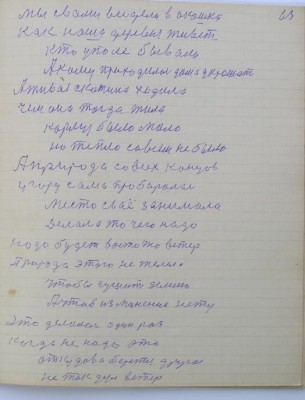 63
мы свами видели в окошко
Как наша деревня живет
Кто уполе бывало
Акому приходилось дома
Аживая скотина ходила
Чем она тогда жила
корму было мало
но тепло совсем не было
Априрода совсех концов
Сама
Место свай занимала
Делала то чего надо
надо будет ветер
Природа этого не желала
Чтобы землю
нету
Это делалось один раз
Когда не надо это
откудова берется другая
не так дул ветер